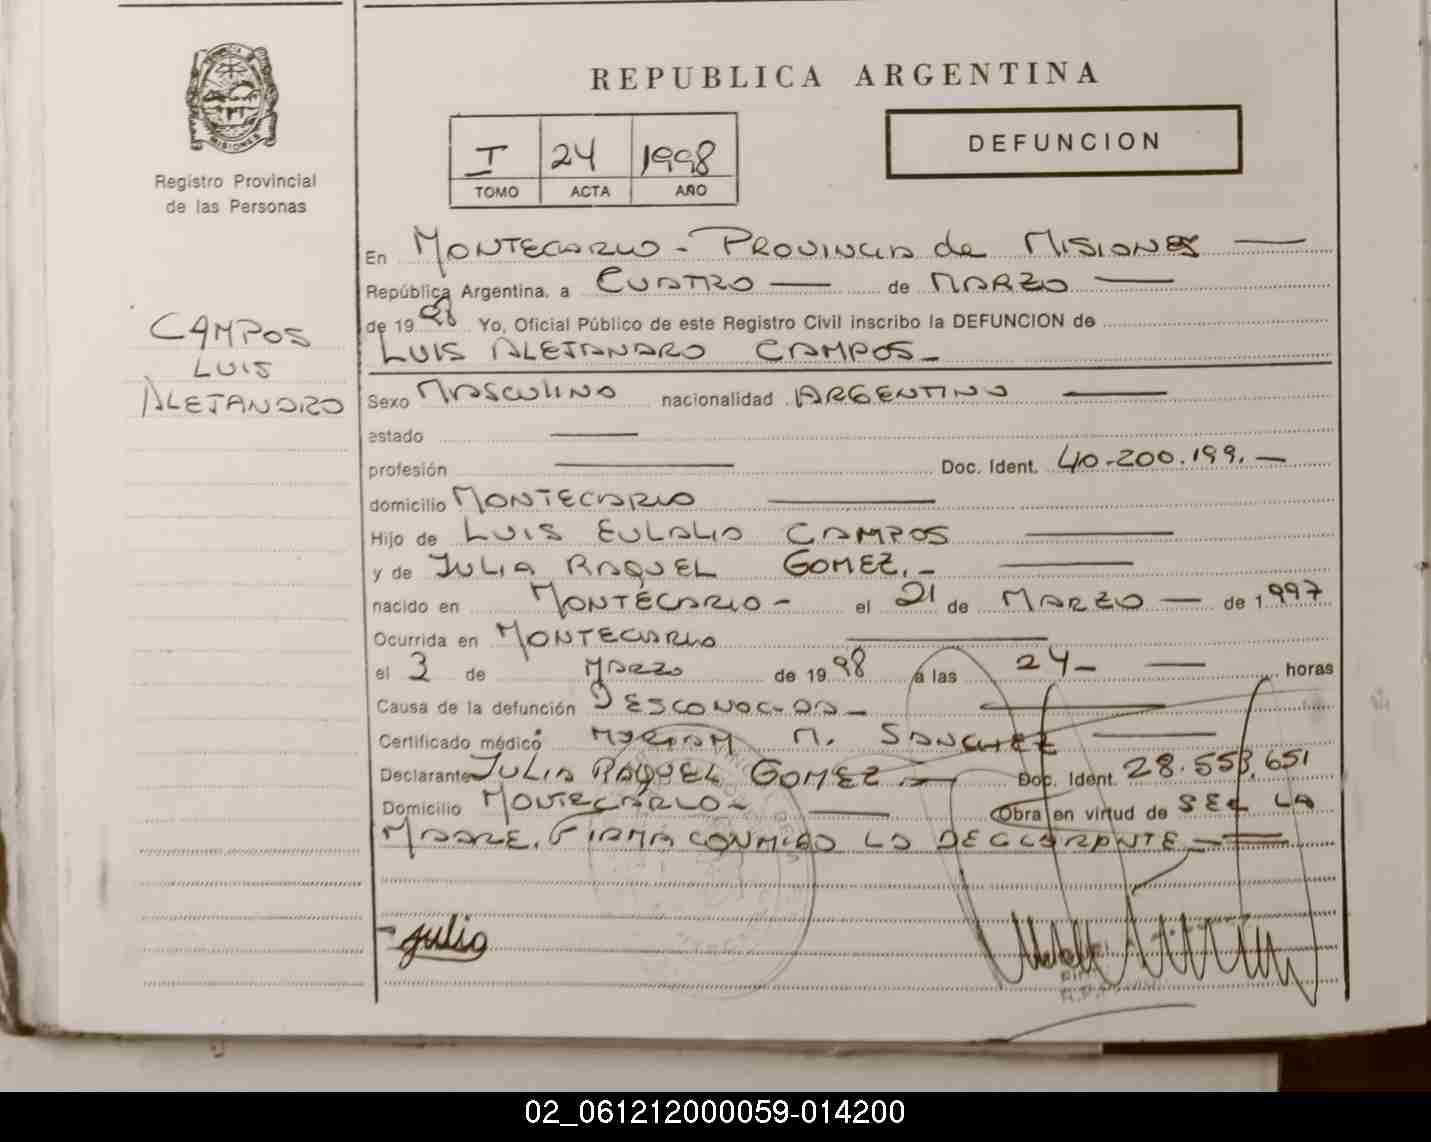 REPUBLICA ARGENTINA
DEFUNCION
I 24 1998
TOMO ACTA AÑO
MISIONES
Registro Provincial
de las Personas
CAMPOS
LUIS
ALEJANDRO
En MONTECARLO - PROVINCIA de MISIONES
República Argentina, a CUATRO de MARZO
de 1998 Yo, Oficial Público de este Registro Civil inscribo la DEFUNCION de
LUIS ALEJANDRO CAMPOS
Sexo MASCULINO nacionalidad ARGENTINO
estado
profesión Doc. Ident. 40.200.199.
domicilio MONTECARLO
Hijo de LUIS EULALIO CAMPOS
y de JULIA RAQUEL GOMEZ.
nacido en MONTECARLO - el 21 de MARZO de 1997
Ocurrida en MONTECARLO
el 3 de MARZO de 1998 a las 24 horas
Causa de la defunción DESCONOCIDA
Certificado médico MYRIAM M. SANCHEZ
Declarante JULIA RAQUEL GOMEZ. Doc. Ident. 28.553.651
Domicilio MONTECARLO - Obra en virtud de SER LA
MADRE. FIRMA CONMIGO LA DECLARANTE
julia
02_061212000059-014200